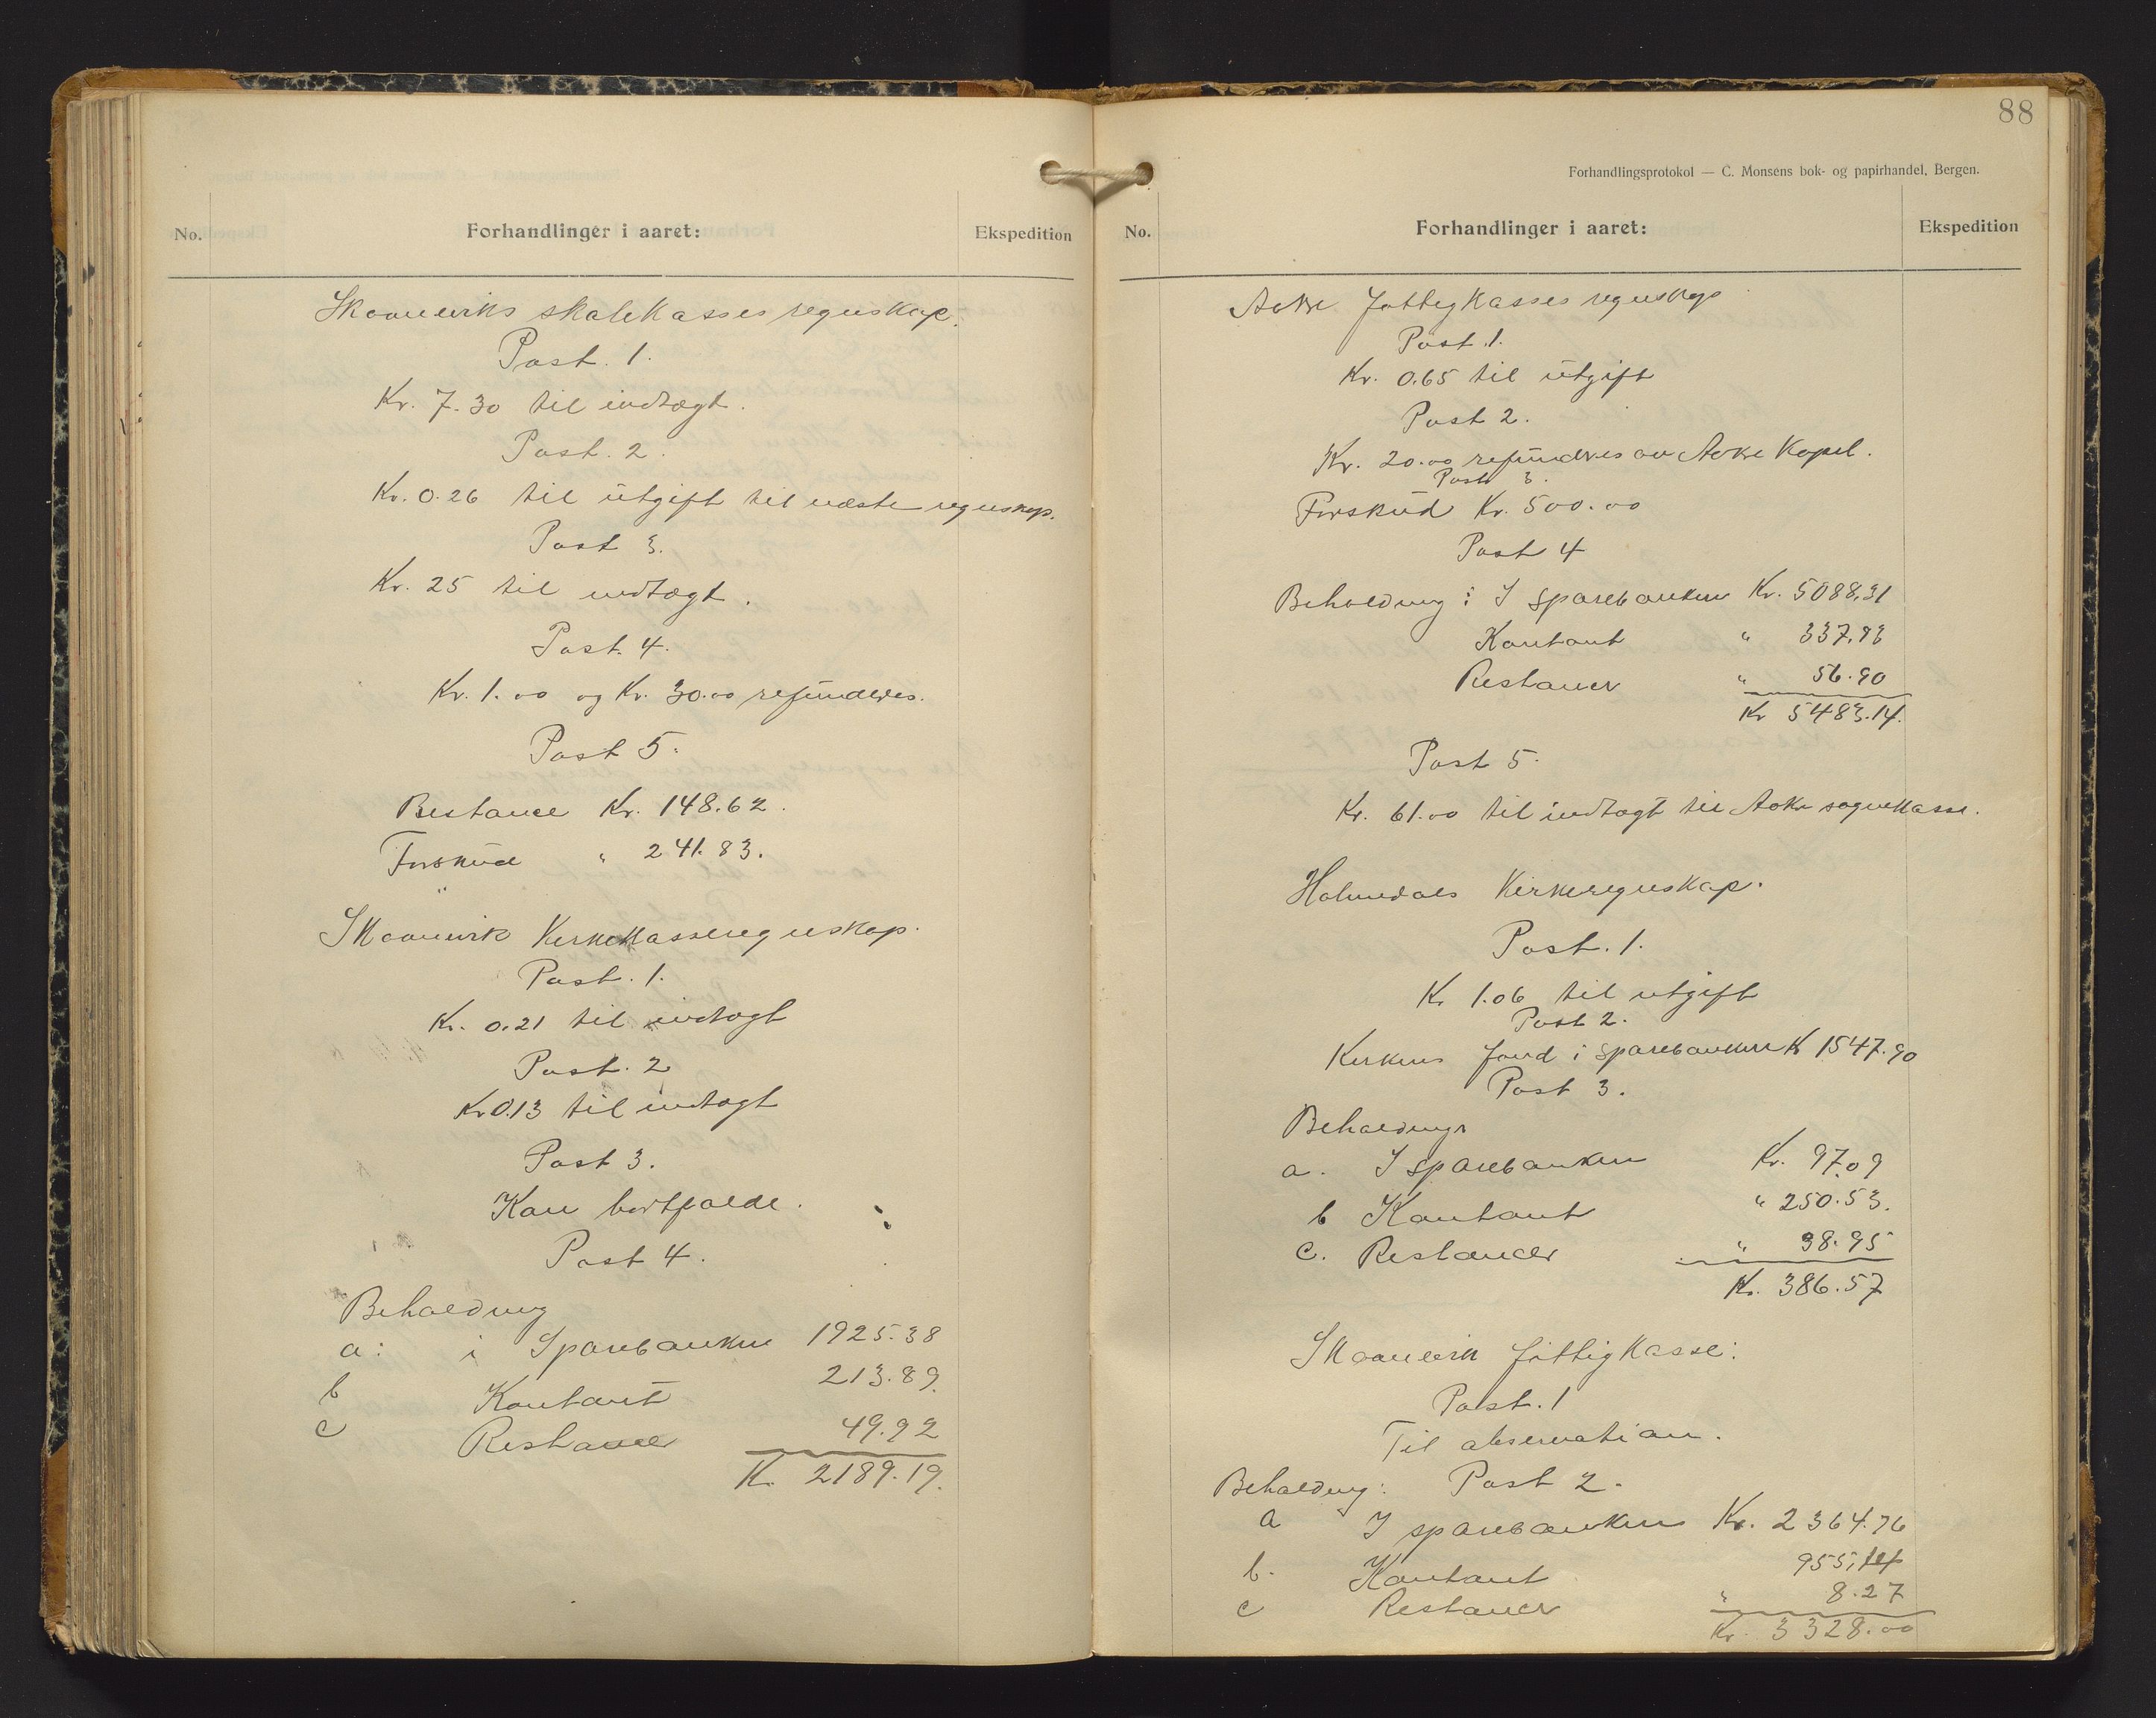 No.
Forhandlinger i aaret:
Ekspedition
Skaaneviks skolekasses regnskap.
Post. 1.
Kr. 7.30 til indtægt.
Post. 2.
Kr. 0.26 til utgift til næste regnskap.
Post 3.
Kr. 25 til indtægt.
Post. 4.
Kr. 1.00 og Kr. 30.00 refunderes.
Post 5.
Restance Kr. 148.62.
Forskud " 241.83.
Skaanevik Kirkekasseregnskap.
Post. 1.
Kr. 0.21 til indtægt
Post. 2
Kr 0.13 til indtægt
Post 3.
Kan bortfalde.
Post 4.
Beholdning
a: i Sparebanken 1925.38
b Kontant 213.89.
c Restancer 49.92
Kr. 2189.19.
88
Forhandlingsprotokol — C. Monsens bok- og papirhandel, Bergen.
No.
Forhandlinger i aaret:
Ekspedition
Aakre fattigkasses regnskap
Post. 1.
Kr. 0.65 til utgift
Post 2.
Kr. 20.00 refunderes av Aakre Kapel.
Post 3.
Forskud Kr. 500.00
Post 4
Beholdning: I sparebanken Kr. 5088,31
Kontant " 337.93
Restancer " 56.90
Kr 5483.14.
Post 5.
Kr. 61.00 til indtægt til Aakre sognekasse.
Holmedals Kirkeregnskap.
Post. 1.
Kr 1.06 til utgift
Post 2.
Kirkens fond i sparebanken Kr 1547.90
Post 3.
Beholdning
a. I sparebanken Kr. 97.09
b Kontant " 250.53.
c. Restancer " 38.95
Kr. 386.57
Skaanevik fattigkasse:
Post. 1
Til observation.
Beholdning: Post 2.
a I sparebanken Kr. 2364.76
b. Kontant 955,14
c Restancer " 8.27
Kr. 3328.00